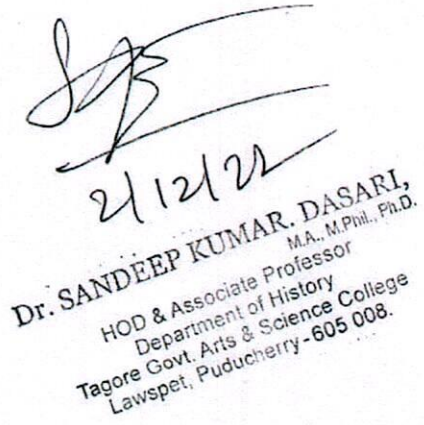 2/12/22
Dr. SANDEEP KUMAR. DASARI,
M.A., M.Phil., Ph.D.
HOD & Associate Professor
Department of History
Tagore Govt. Arts & Science College
Lawspet, Puducherry - 605 008.